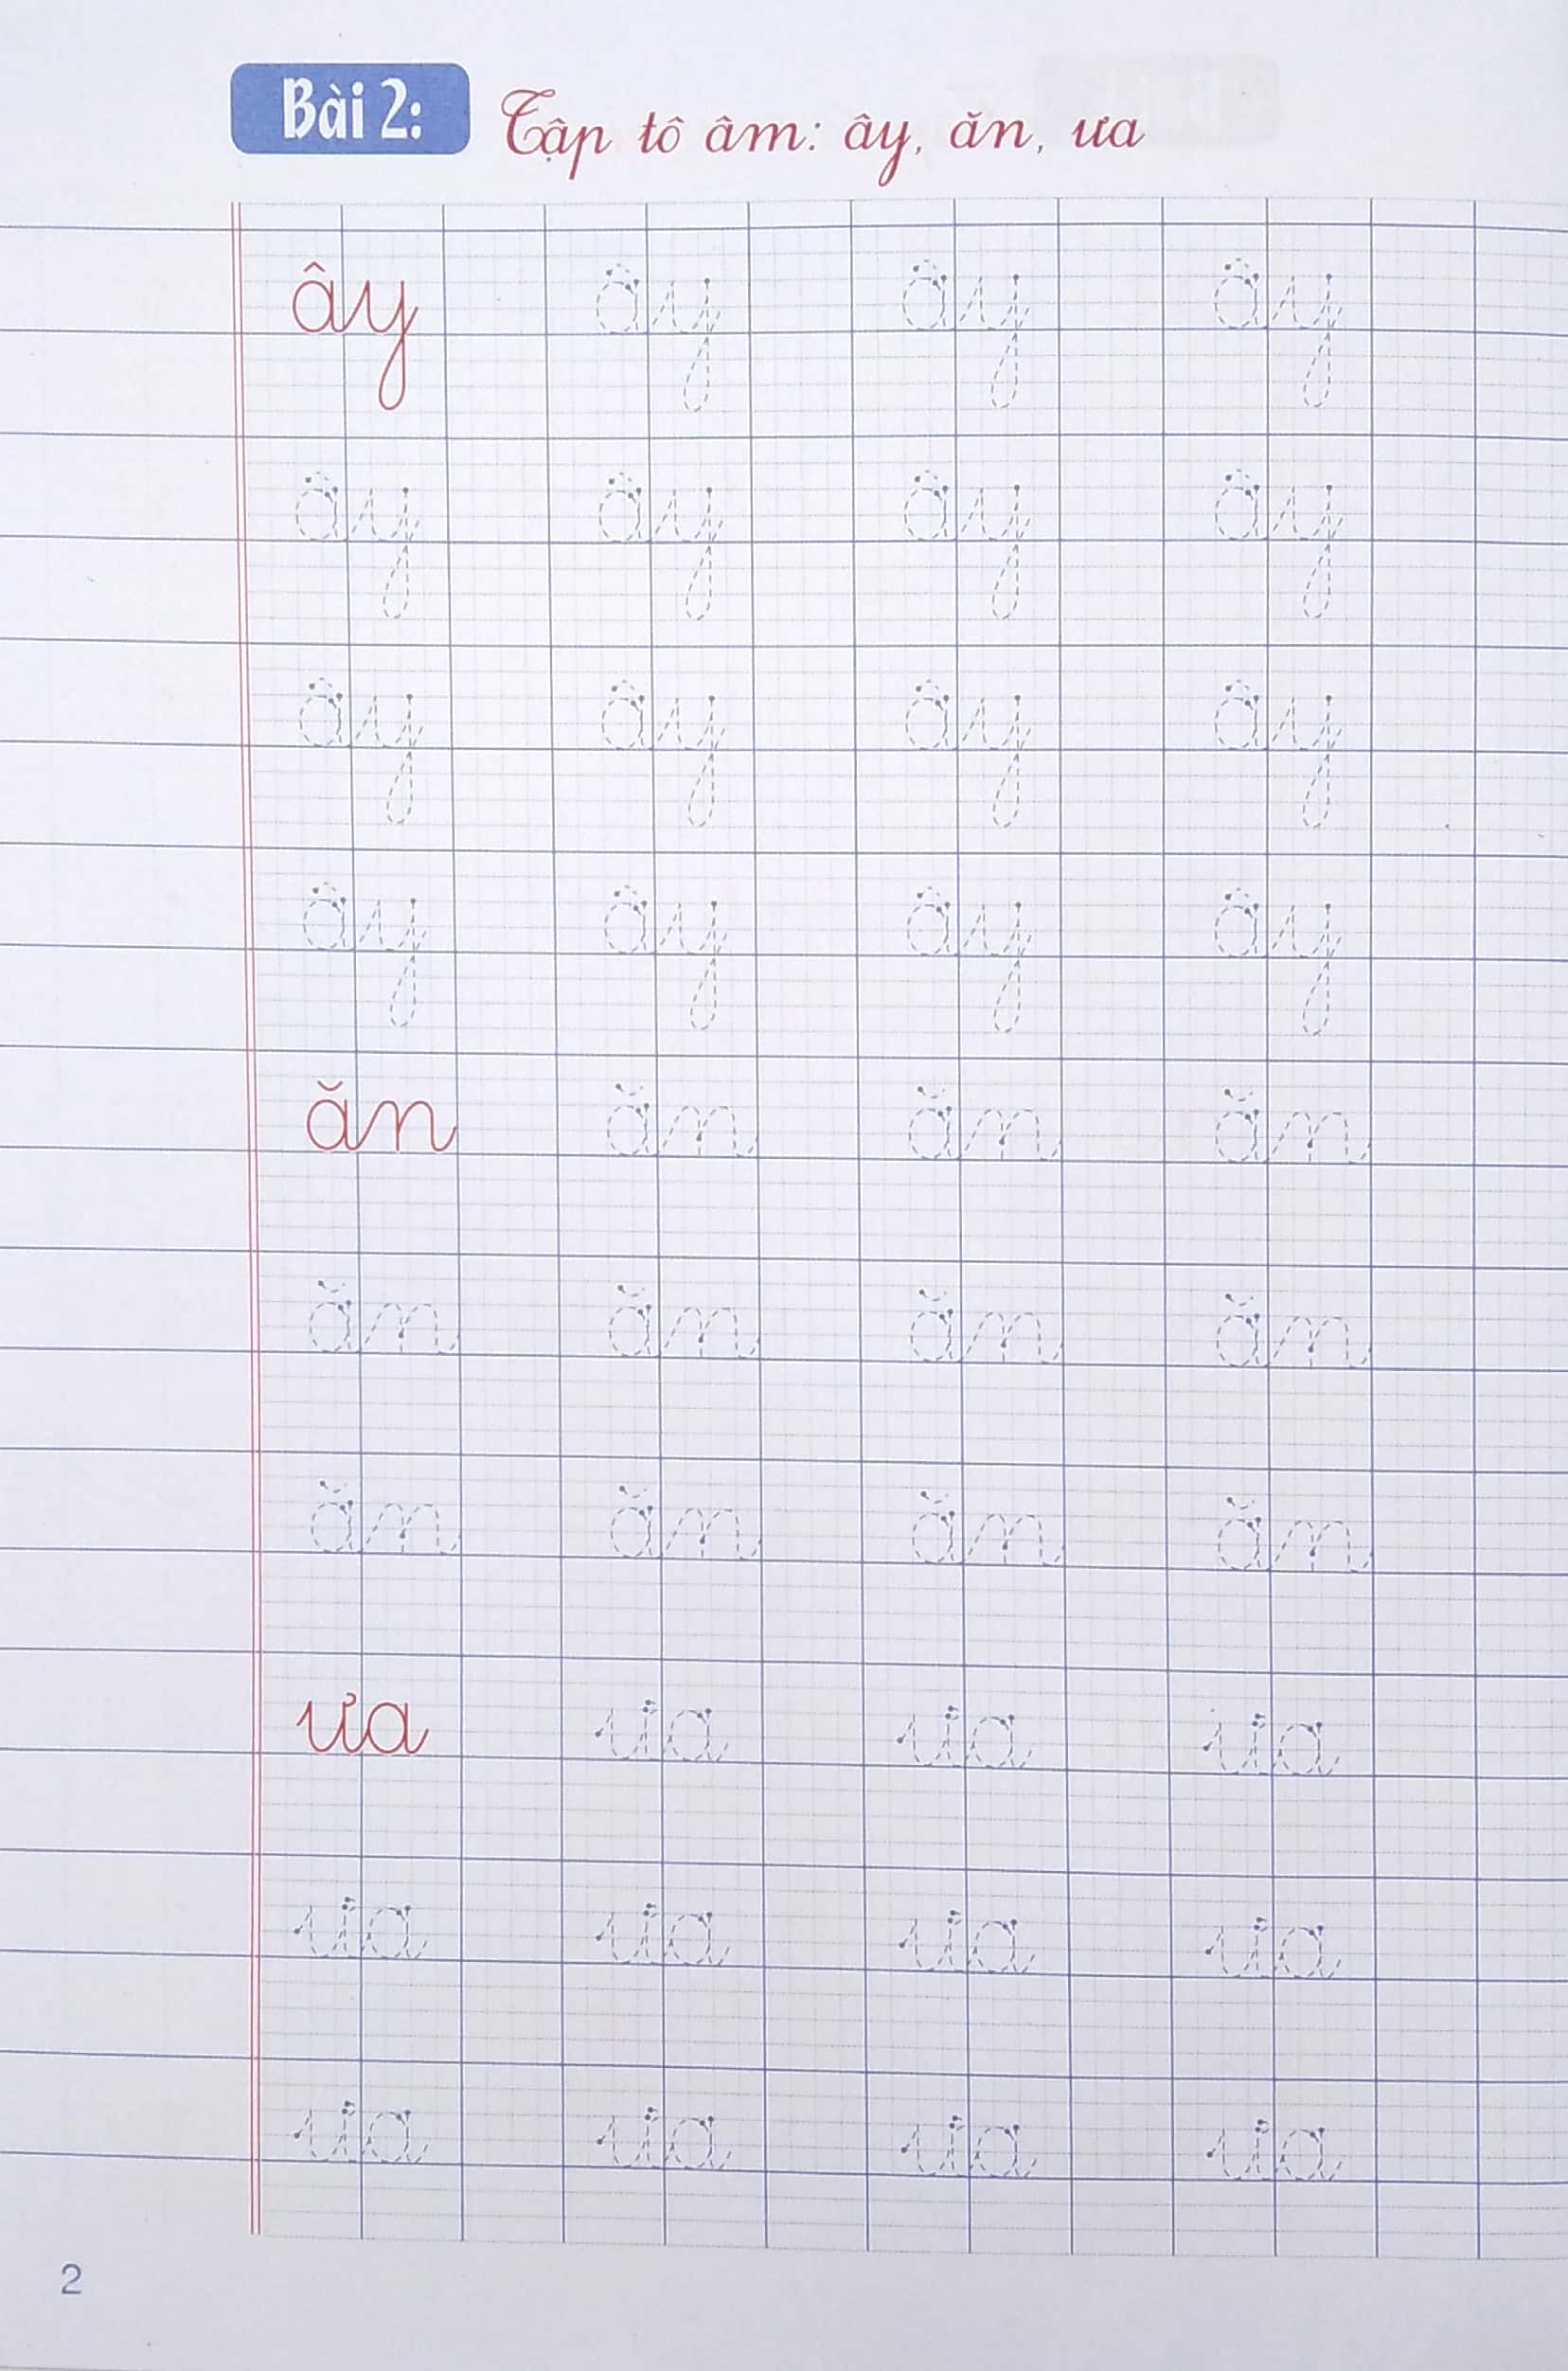 Bài 2: Tập tô âm: ây, ăn, ưa
ây ây ây ây
ây ây ây ây
ây ây ây ây
ây ây ây ây
ăn ăn ăn ăn
ăn ăn ăn ăn
ăn ăn ăn ăn
ưa ưa ưa ưa
ưa ưa ưa ưa
ưa ưa ưa ưa
2